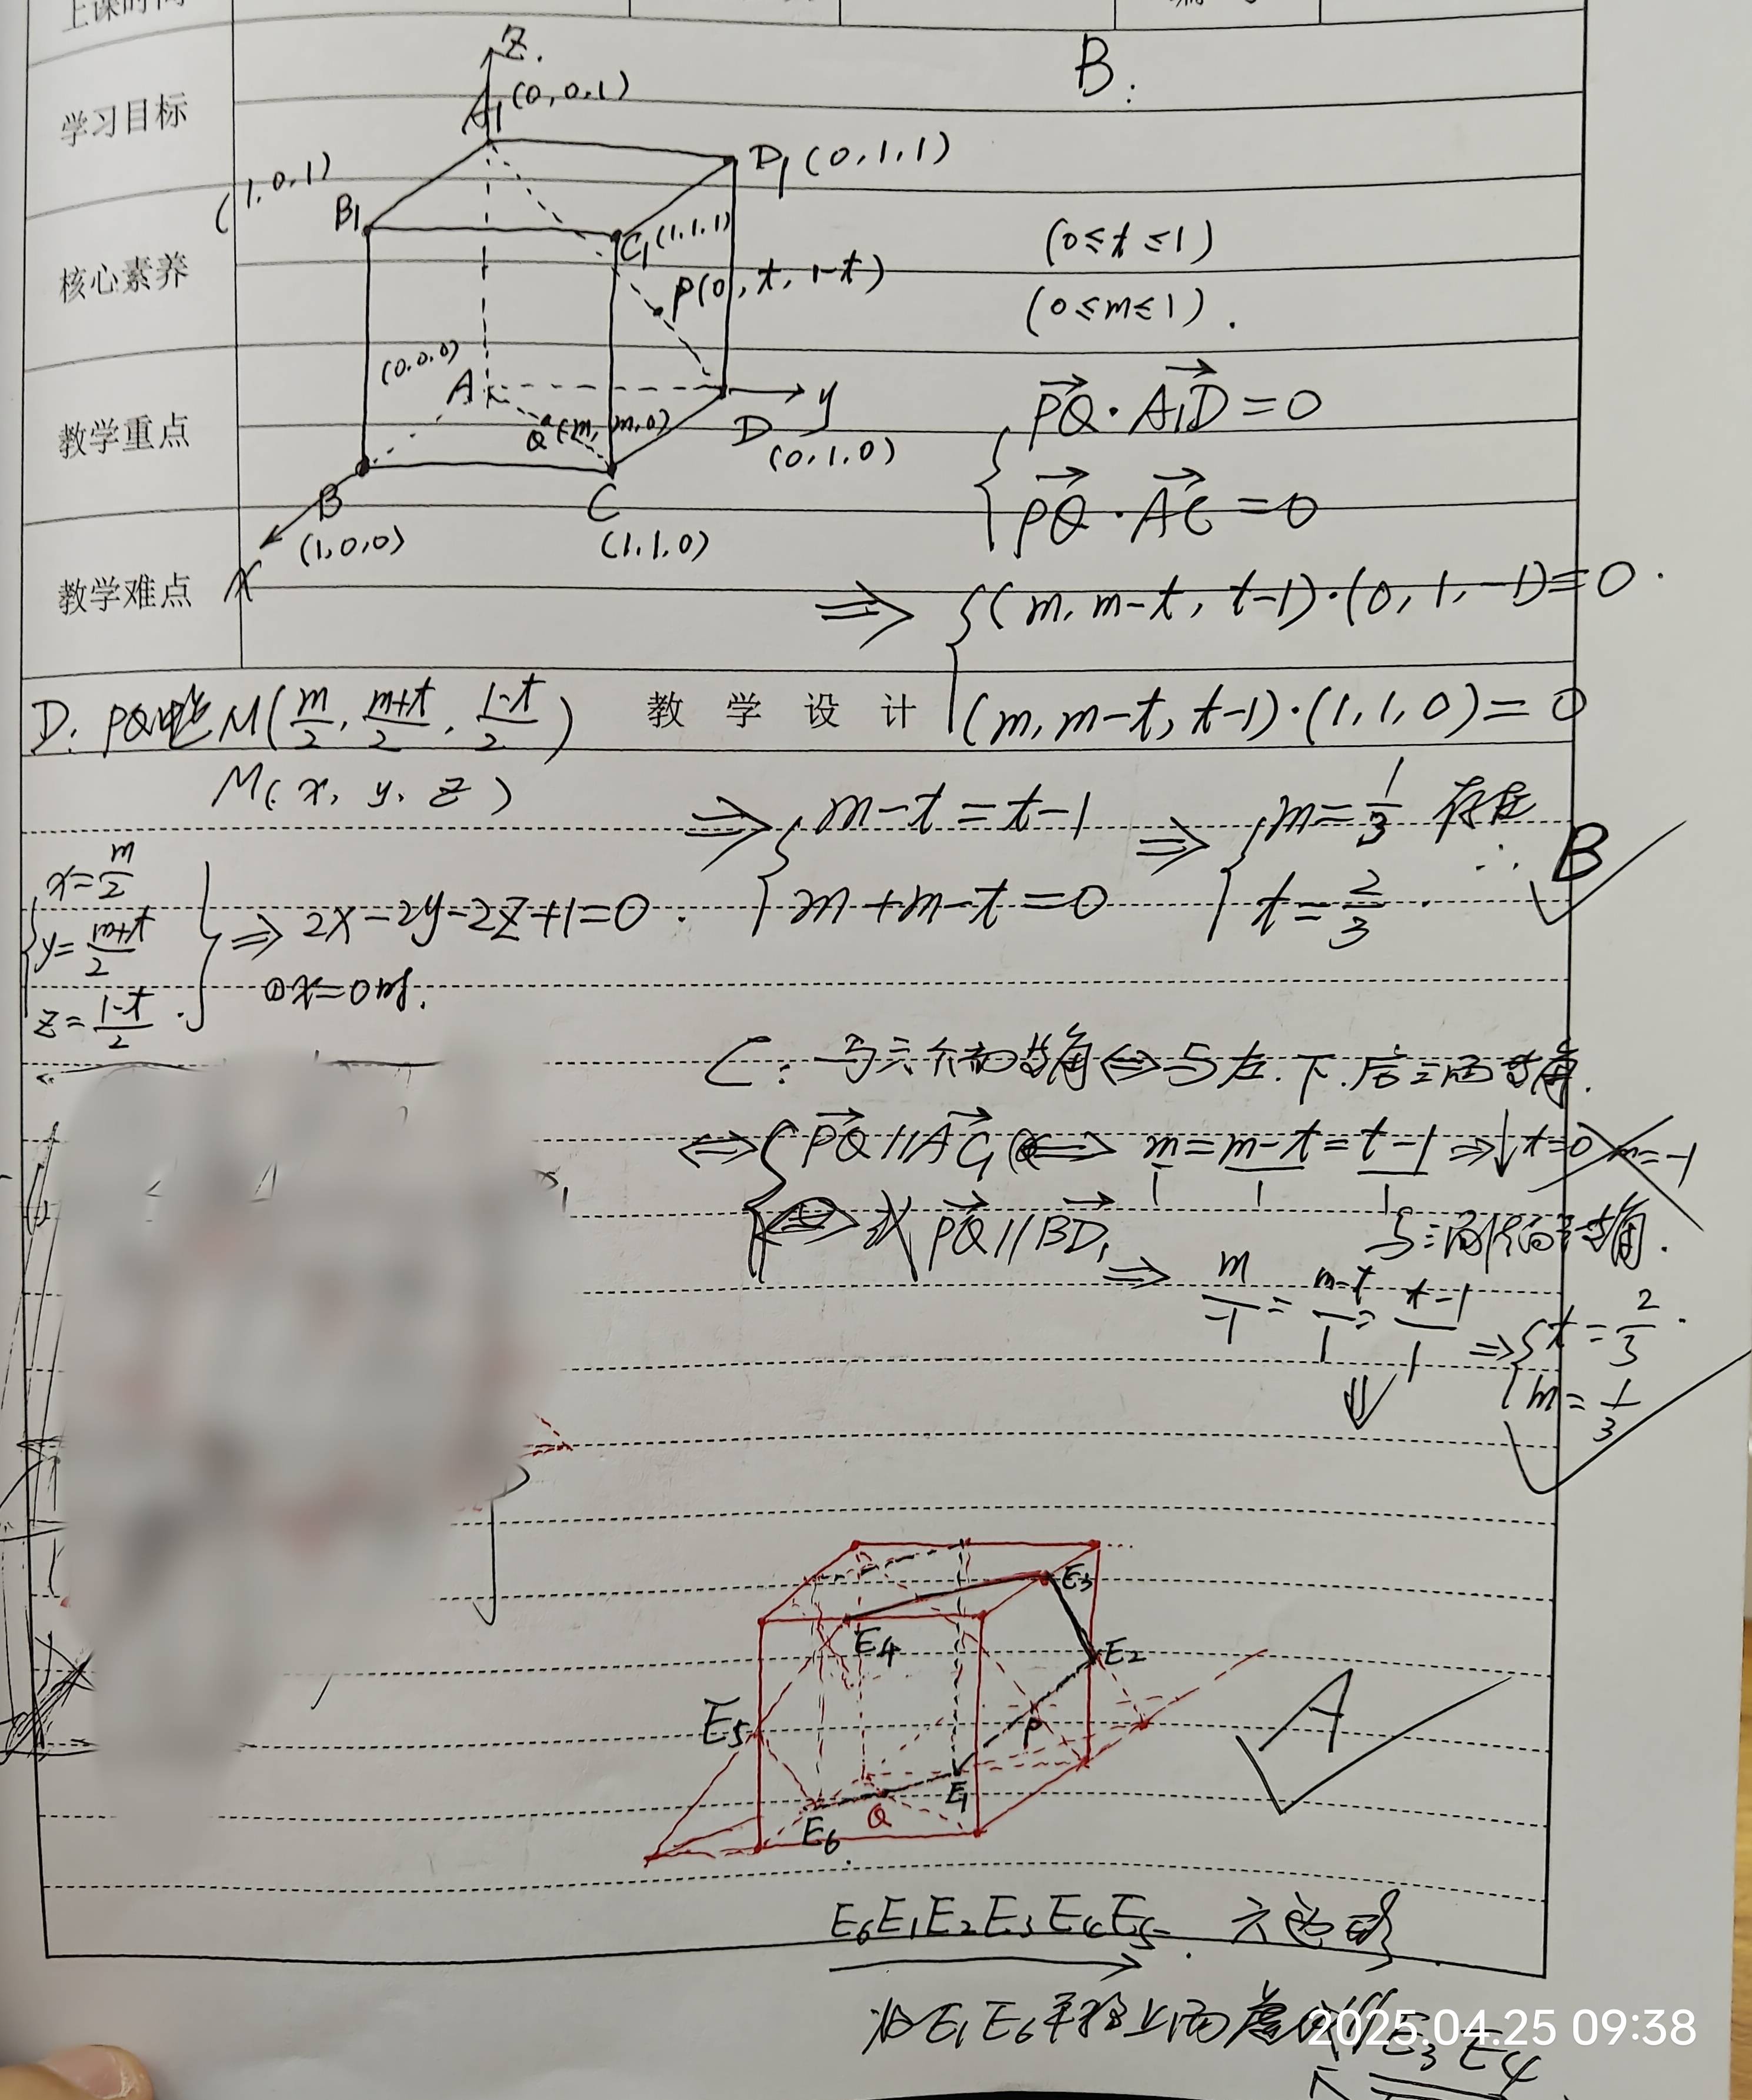 上课时间
学习目标
核心素养
教学重点
教学难点
教 学 设 计
Z.
A₁(0,0,1)
D₁(0,1,1)
(1,0,1)
B₁
C₁(1,1,1)
P(0,t,1-t)
(0,0,0)
A
Q(m,m,0)
y
D
(0,1,0)
B
(1,0,0)
C
(1,1,0)
X
B:
(0≤t≤1)
(0≤m≤1).
PQ·A₁D=0
PQ·AC=0
⇒ {(m,m-t,t-1)·(0,1,-1)=0.
(m,m-t,t-1)·(1,1,0)=0
⇒ {m-t=t-1 ⇒ {m=1/3 存在
m+m-t=0 t=2/3. ∴ B✓
D: PQ中点M(m/2, m+t/2, 1-t/2)
M(x,y,z)
{x=m/2
y=m+t/2
z=1-t/2.} ⇒ 2x-2y-2z+1=0.
①x=0时.
C: 与六个面等角⇔与左.下.后三面等角.
⇔{PQ//AC₁ ⇔ m/1=m-t/1=t-1/1 ⇒ t=0 m=-1
或 PQ//BD₁
⇒ m/-1=m-t/1=t-1/1 ⇒ {t=2/3.
m=1/3
E₃
E₄
E₂
E₅
P
E₁
Q
E₆
A✓
E₆E₁E₂E₃E₄E₅. 六边形
将E₁E₆平移上面
E₃E₄
2025.04.25 09:38